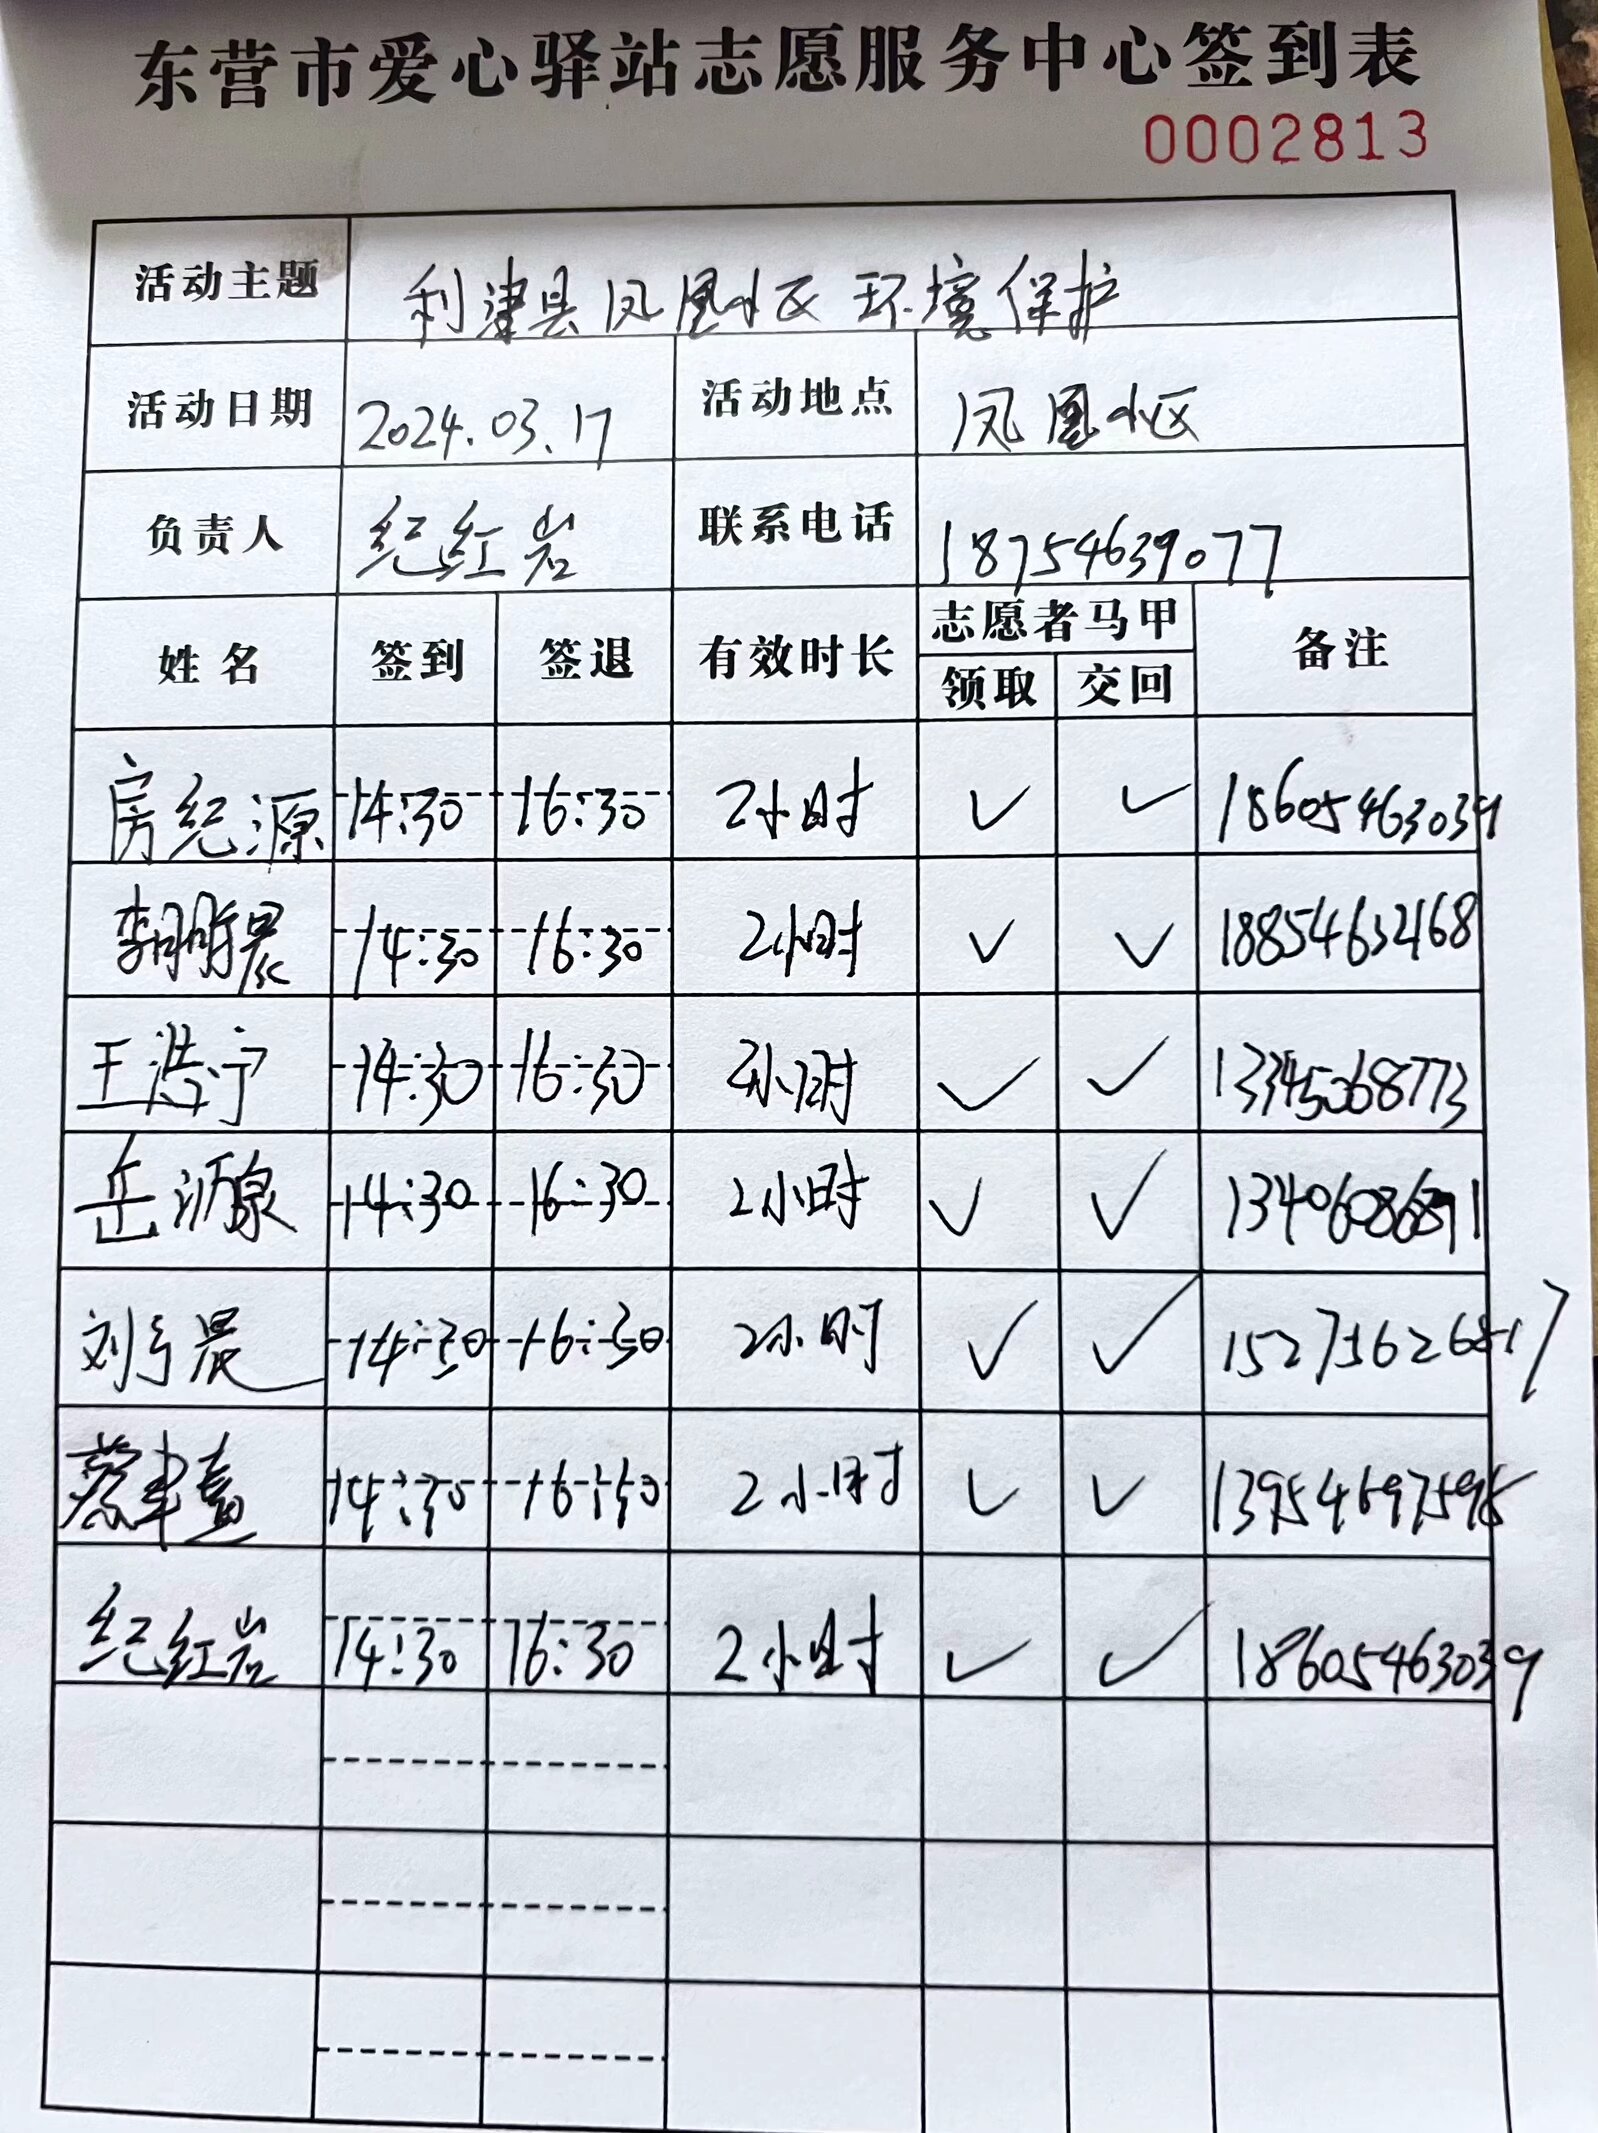 东营市爱心驿站志愿服务中心签到表
0002813
活动主题 利津县凤凰小区环境保护
活动日期 2024.03.17 活动地点 凤凰小区
负责人 纪红岩 联系电话 18754639077
姓名 签到 签退 有效时长 志愿者马甲 备注
领取 交回
房纪源 14:30 16:30 2小时 ✓ ✓ 18605463039
14:30 16:30 2小时 ✓ ✓ 18854632168
王浩宁 14:30 16:30 2小时 ✓ ✓ 13345068773
岳沥泉 14:30 16:30 2小时 ✓ ✓
14:30 16:30 2小时 ✓ ✓
14:30 16:30 2小时 ✓ ✓ 13954697595
纪红岩 14:30 16:30 2小时 ✓ ✓ 18605463039